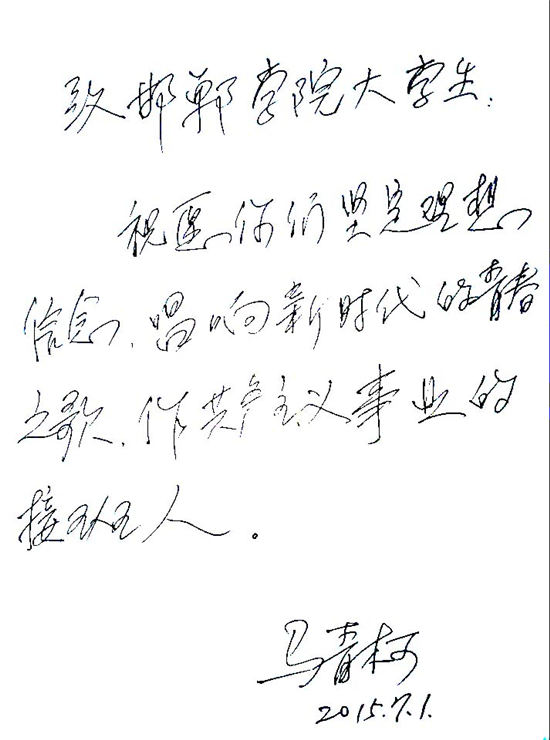 致邯郸学院大学生:
祝愿你们坚定理想
信念、唱响新时代的青春
之歌、作共产主义事业的
接班人。
马青柯
2015.7.1.